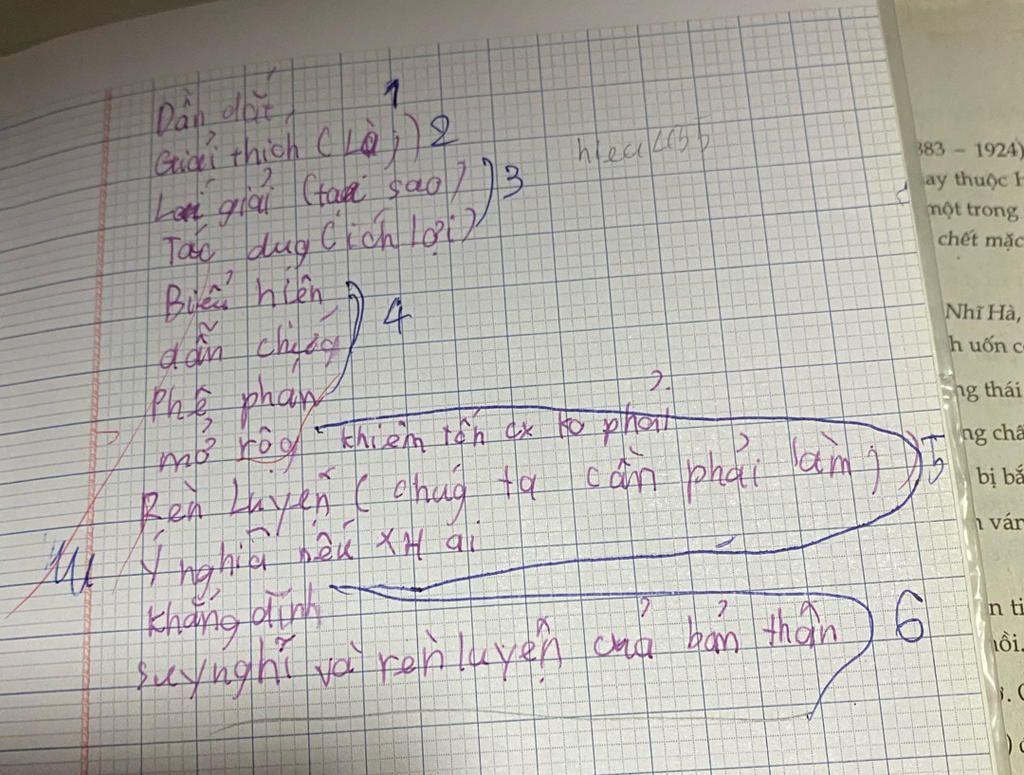 Dẫn dắt 1
Giải thích (Là,) 2
hiểu
Lí giải (tại sao) 3
Tác dug (ích lợi)
Biểu hiện
dẫn chứg 4
Phê phán
mở rôg khiêm tốn cx ko phải
Rèn luyện (chúg ta cần phải làm) 5
Ý nghĩa nếu XH ai
khẳng định
suy nghĩ và rèn luyện của bản thân 6
383 – 1924)
ay thuộc
một trong
chết mặc
Nhĩ Hà,
h uốn c
ng thái
ng chấ
bị bắ
n ván
n ti
nồi.